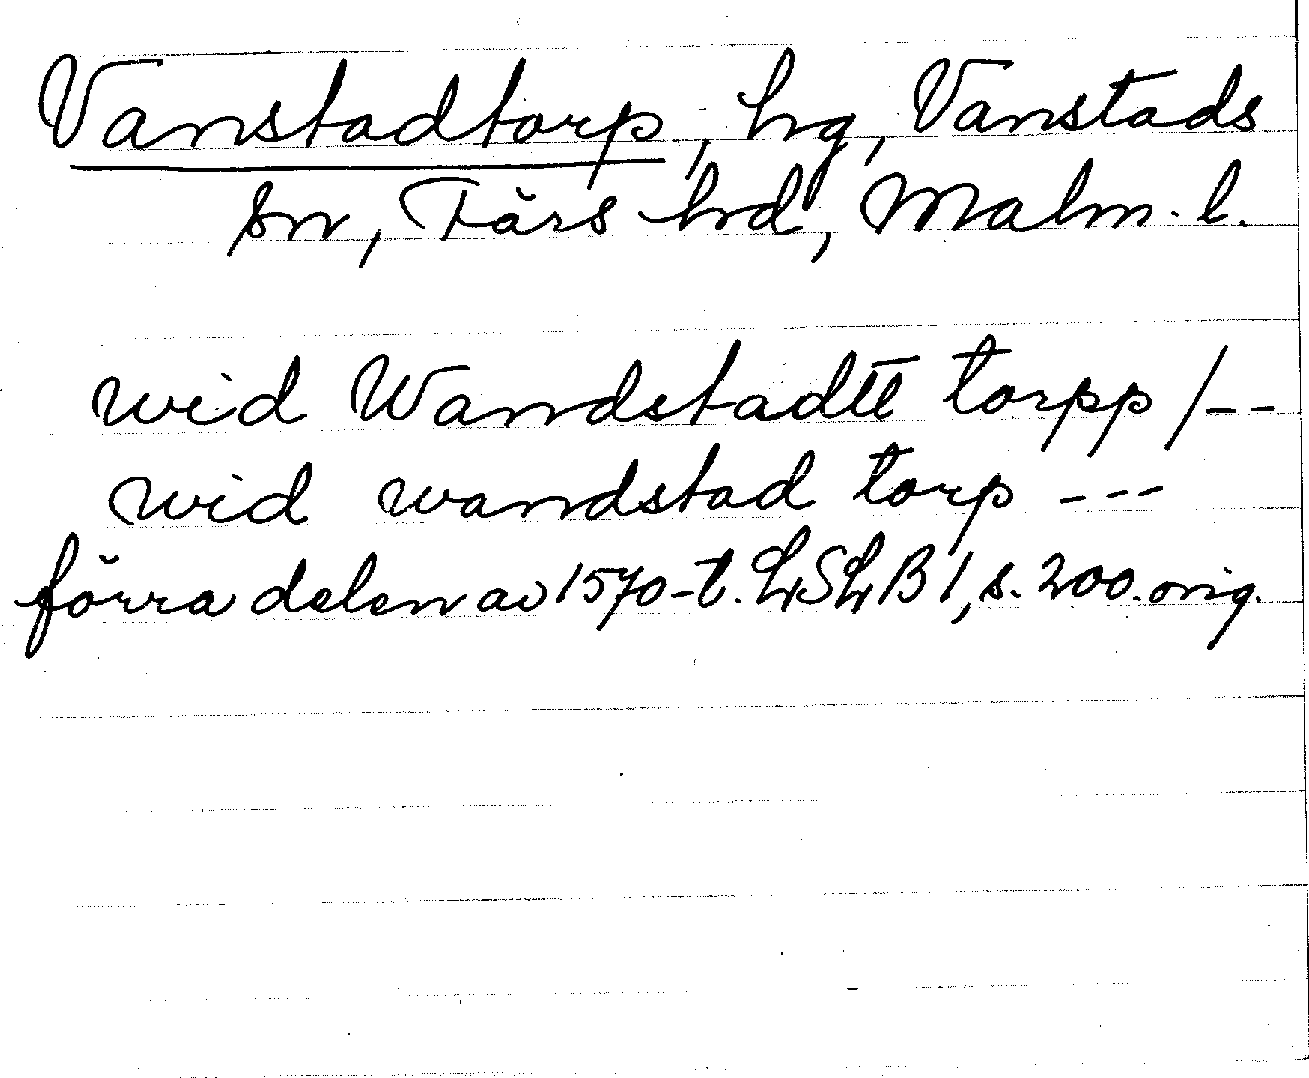 Vanstadtorp, hg, Vanstads
sn, Färs hd, Malm. l.
wid Wandstadtt torpp /--
wid wandstad torp ---
förra delen av 1570-t. LSLB 1, s. 200. orig.